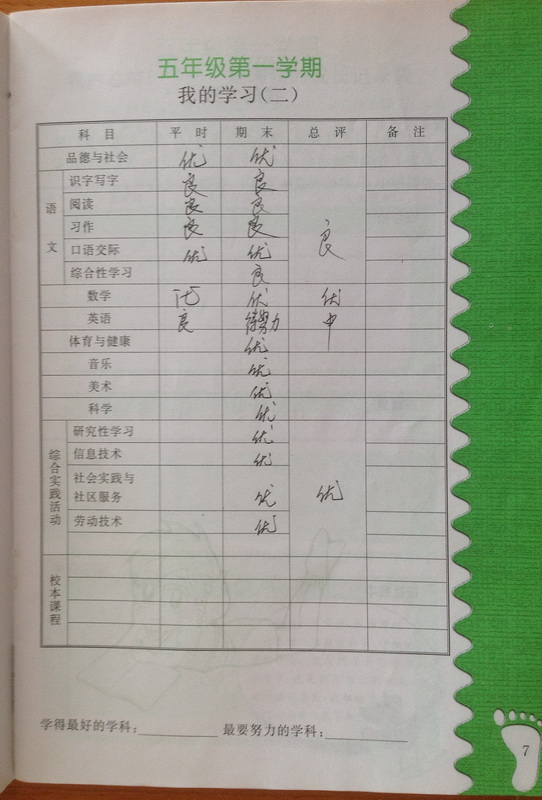 五年级第一学期
我的学习(二)
科 目 平 时 期 末 总 评 备 注
品德与社会 优 优
语文 识字写字 良 良
阅读 良 良
习作 良 良 良
口语交际 优 优
综合性学习 良
数学 优 优 优
英语 良 待努力 中
体育与健康 优
音乐 优
美术 优
科学 优
综合实践活动 研究性学习 优
信息技术 优
社会实践与
社区服务 优 优
劳动技术 优
校本课程
学得最好的学科: 最要努力的学科:
7